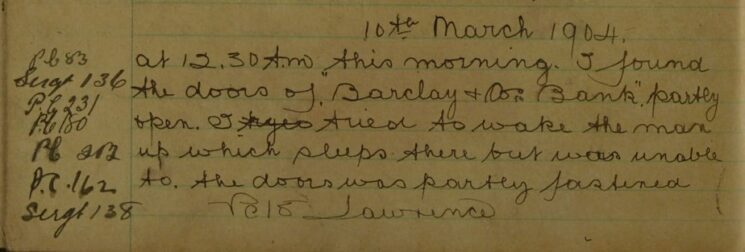 10th March 1904.
Pb 83 at 12.30 Am this morning. I found
Sergt 136 the doors of, "Barclay & Co. Bank", partly
Pb 231 open. I tryed tried to wake the man
Pb 180 up which sleeps there but was unable
Pb 202 to. the doors was partly fastened
P.C. 162
Sergt 138 Pc 18 Lawrence